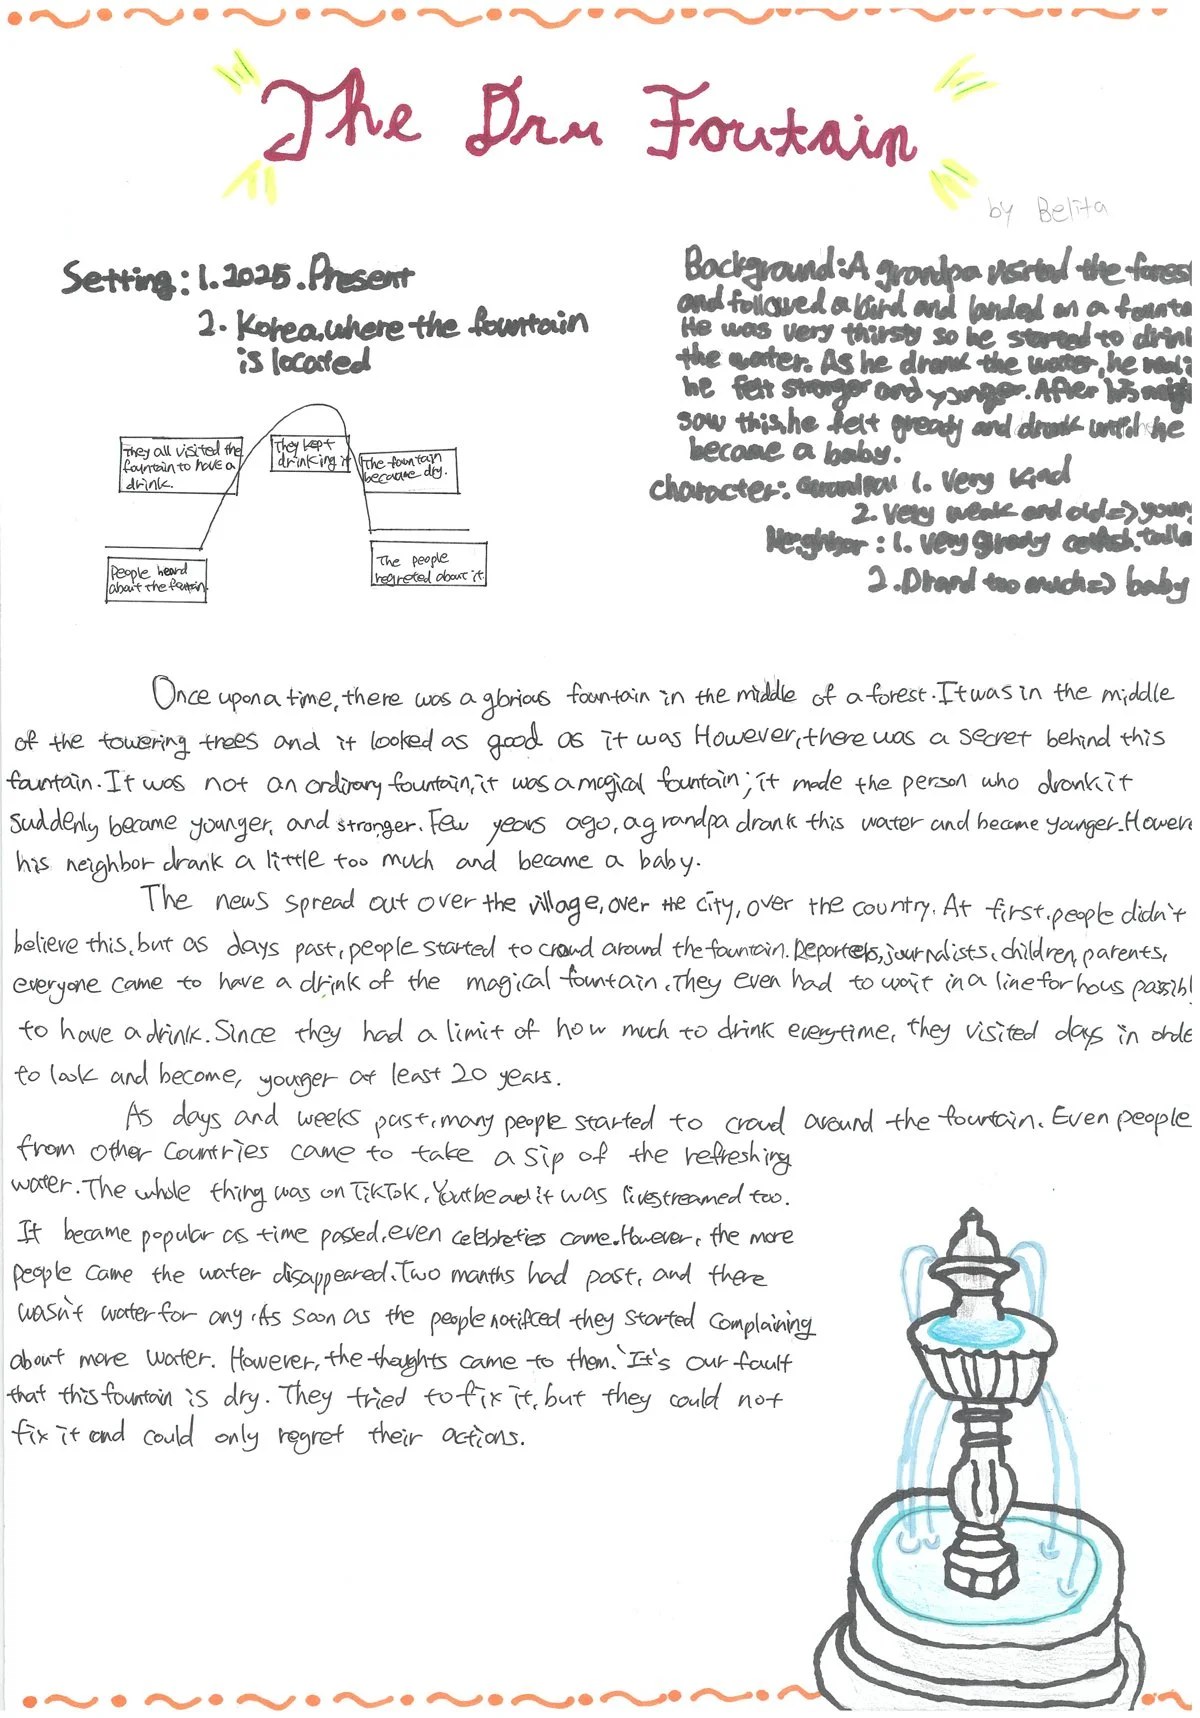 The Dru Foutain
by Belita
Setting: 1. 2025. Present
2. Korea. where the fountain
is located
Background: A grandpa visited the forest
and followed a bird and landed on a founta
He was very thirsty so he started to drink
the water. As he drank the water, he reali
he felt stronger and younger. After his neigh
saw this, he felt gready and drank until he
became a baby.
character: Grandpa 1. Very kind
2. Very weak and old => young
Neighbor : 1. Very gready
2. Drand too much => baby
They all visited the
fountain to have a
drink.
They kept
drinking it
The fountain
became dry.
People heard
about the fountain.
The people
regreted about it.
Once upon a time, there was a glorious fountain in the middle of a forest. It was in the middle
of the towering trees and it looked as good as it was However, there was a secret behind this
fountain. It was not an ordirary fountain, it was a magical fountain; it made the person who drank it
suddenly became younger, and stronger. Few years ago, a grandpa drank this water and became younger. Howeve
his neighbor drank a little too much and became a baby.
The news spread out over the village, over the city, over the country. At first, people didn't
believe this, but as days past, people started to croud around the fountain. Reporters, journalists, children, parents,
everyone came to have a drink of the magical fountain. They even had to wait in a line for hous passibl
to have a drink. Since they had a limit of how much to drink everytime, they visited days in orde
to look and become, younger at least 20 years.
As days and weeks past, many people started to croud around the fountain. Even people
from other countries came to take a sip of the refreshing
water. The whole thing was on TikTok, Youtbe and it was livestreamed too.
It became popular as time passed, even celebreties came. However, the more
people came the water disappeared. Two manths had past, and there
wasn't water for any. As soon as the people notifced they started complaining
about more water. However, the thoughts came to them. 'It's our fault
that this fountain is dry. They tried to fix it, but they could not
fix it and could only regret their actions.